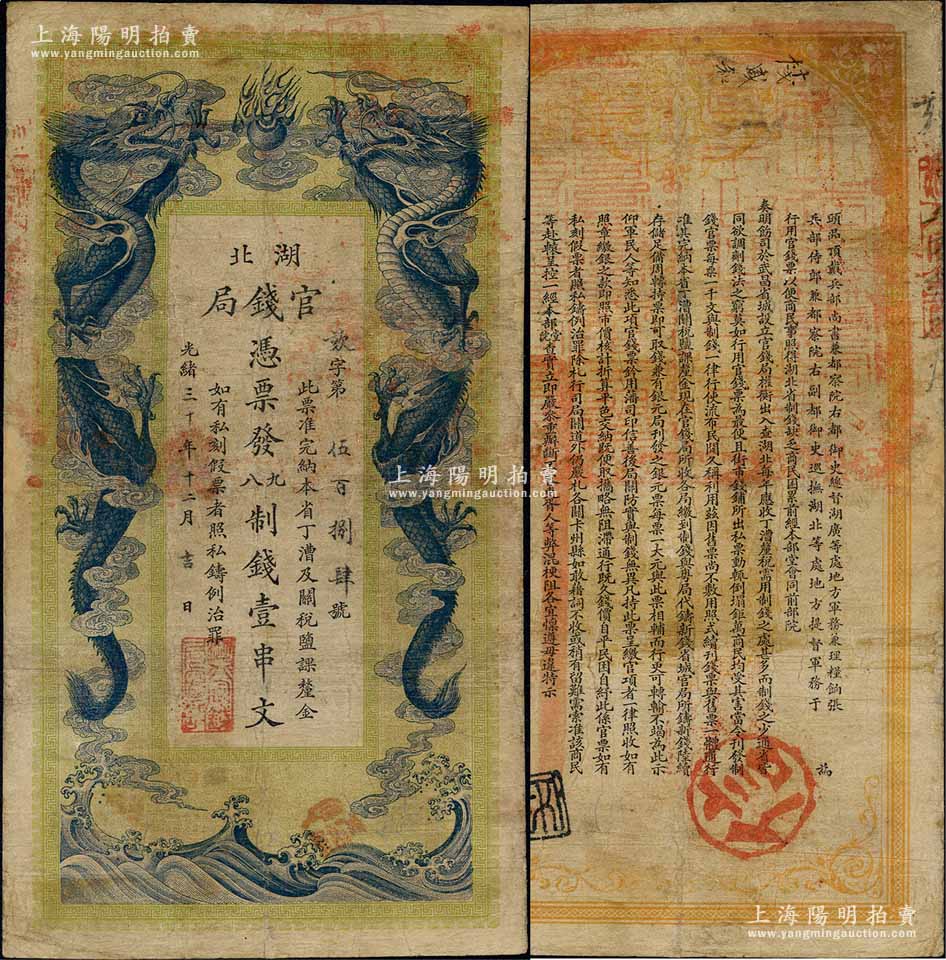 上海陽明拍賣
www.yangmingauction.com
湖北
官錢局
憑票發九八制錢壹串文
欽字第 伍百捌肆號
此票准完納本省丁漕及關稅鹽課釐金
如有私刻假票者照私鑄例治罪
光緒三十年十二月吉日
上海陽明拍賣
www.yangmingauction.com
頭品頂戴兵部尚書兼都察院右都御史總督湖廣等處地方軍務兼理糧餉張
兵部侍郎兼都察院右副都御史巡撫湖北等處地方提督軍務于
為
行用官錢票以便商民事照得湖北省制錢缺乏商民困累前經本部堂會同前部院
奏明飭司於武昌省城設立官錢局推衡出入查湖北每年應收丁漕釐稅需用制錢之處甚多而制錢之少通省皆
同欲調劑錢法之窮莫如行用官錢票為最便且街市錢鋪所出私票動輒倒塌銀萬商民均受其害當令刊發制
錢官票每票一千文與制錢一律行使流布民間久稱利用茲因舊票尚不敷用照式續刊錢票與舊票一體通行
准其完納本省丁漕關稅鹽課釐金現在官錢局所收各局繳到制錢與粵局代鑄新錢省城官局所鑄新錢陸續
存儲足備周轉持票即可取錢兼有銀元局刊發之銀元票每票一大元與此票相輔而行更可轉輸不竭為此示
仰軍民人等知悉此項官錢票鈐用藩司印信善後局關防實與制錢無異凡持此票呈繳官項者一律照收如有
照章繳銀之款即照市價核計折算平色交納既便取攜略無阻滯通行既久錢價自平民困自紓此係官票如有
私刻假票者照私鑄例治罪除札行司局關道外倘嚴札各關卡州縣如敢藉詞不收或稍有留難需索准該商民
等赴轅呈控一經本部堂院查實立即嚴參重辦斷不
胥人等弊混梗阻各宜懍遵毋違特示
上海陽明拍賣
www.yangmingauction.com